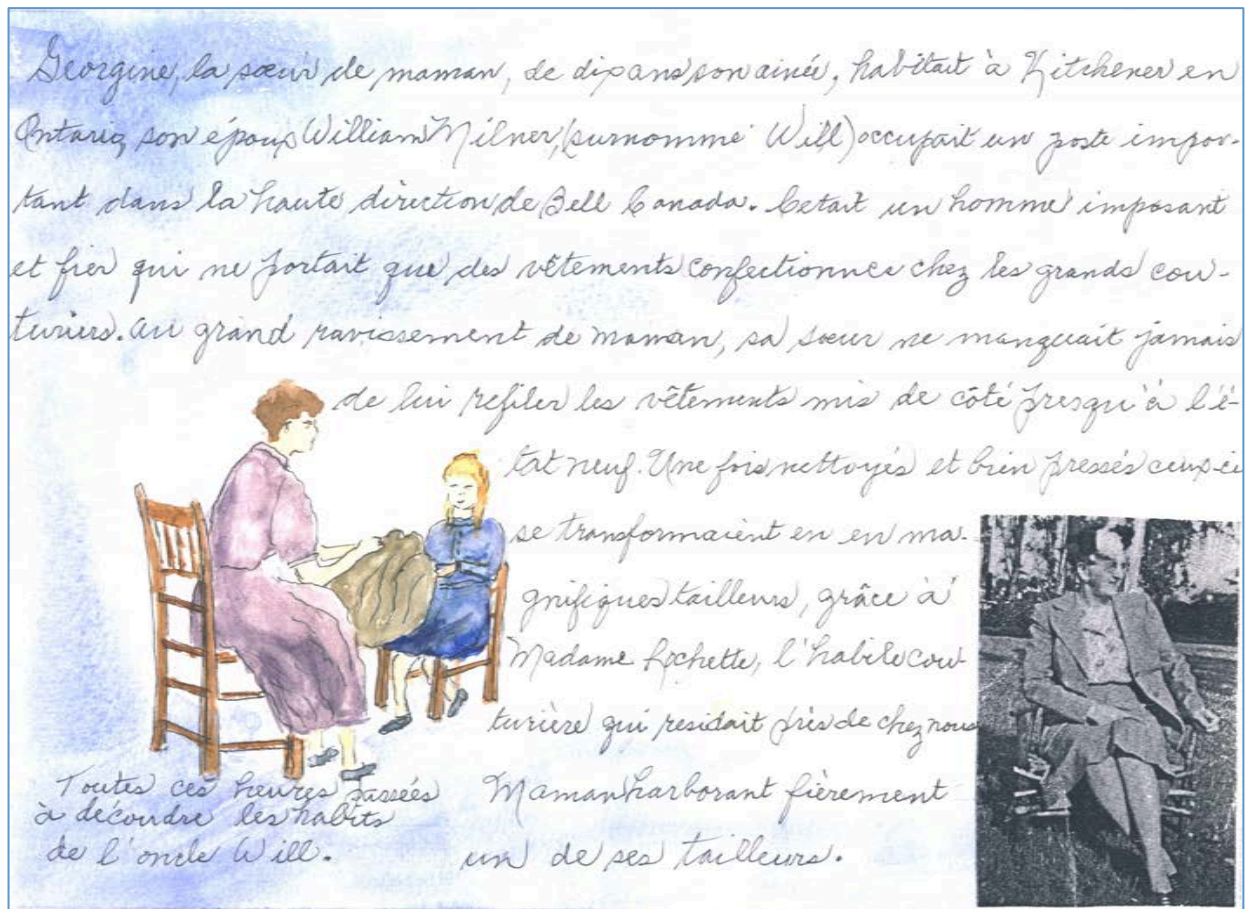 Georgine, la sœur de maman, de dix ans son ainée, habitait à Kitchener en
Ontario, son époux William Milner, (surnommé Will) occupait un poste impor-
tant dans la haute direction de Bell Canada. C'etait un homme imposant
et fier qui ne portait que des vêtements confectionnés chez les grands cou-
turiers. Au grand ravissement de maman, sa sœur ne manquait jamais
de lui refiler les vêtements mis de côté presqu'à l'é-
tat neuf. Une fois nettoyés et bien pressés ceux-ci
se transformaient en en ma-
gnifiques tailleurs, grâce à
Madame Rochette, l'habile cou-
turière qui residait près de chez nous
Toutes ces heures passées
à découdre les habits
de l'oncle Will.
Maman harborant fièrement
un de ses tailleurs.